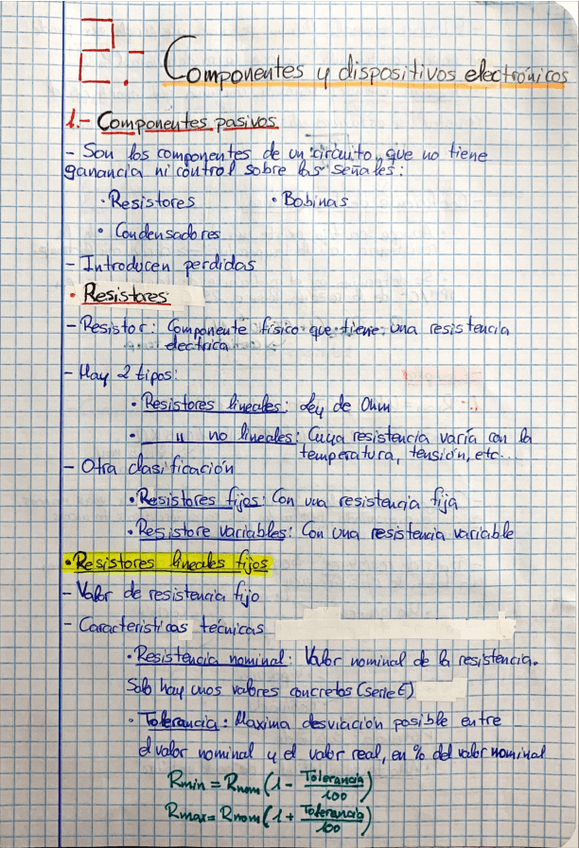 2.- Componentes y dispositivos electrónicos
1.- Componentes pasivos
- Son los componentes de un circuito que no tiene
ganancia ni control sobre las señales:
· Resistores · Bobinas
· Condensadores
- Introducen perdidas
· Resistores
- Resistor: Componente físico que tiene una resistencia
electrica
- Hay 2 tipos:
· Resistores lineales: Ley de Ohm
· __ " no lineales: Cuya resistencia varía con la
temperatura, tensión, etc...
- Otra clasificación
· Resistores fijos: Con una resistencia fija
· Resistore variables: Con una resistencia variable
· Resistores lineales fijos
- Valor de resistencia fijo
- Caracteristicas técnicas
· Resistencia nominal: Valor nominal de la resistencia.
Solo hay unos valores concretos (serie E)
· Tolerancia: Maxima desviación posible entre
el valor nominal y el valor real, en % del valor nominal
Rmin = Rnom (1 - Tolerancia/100)
Rmax = Rnom (1 + Tolerancia/100)